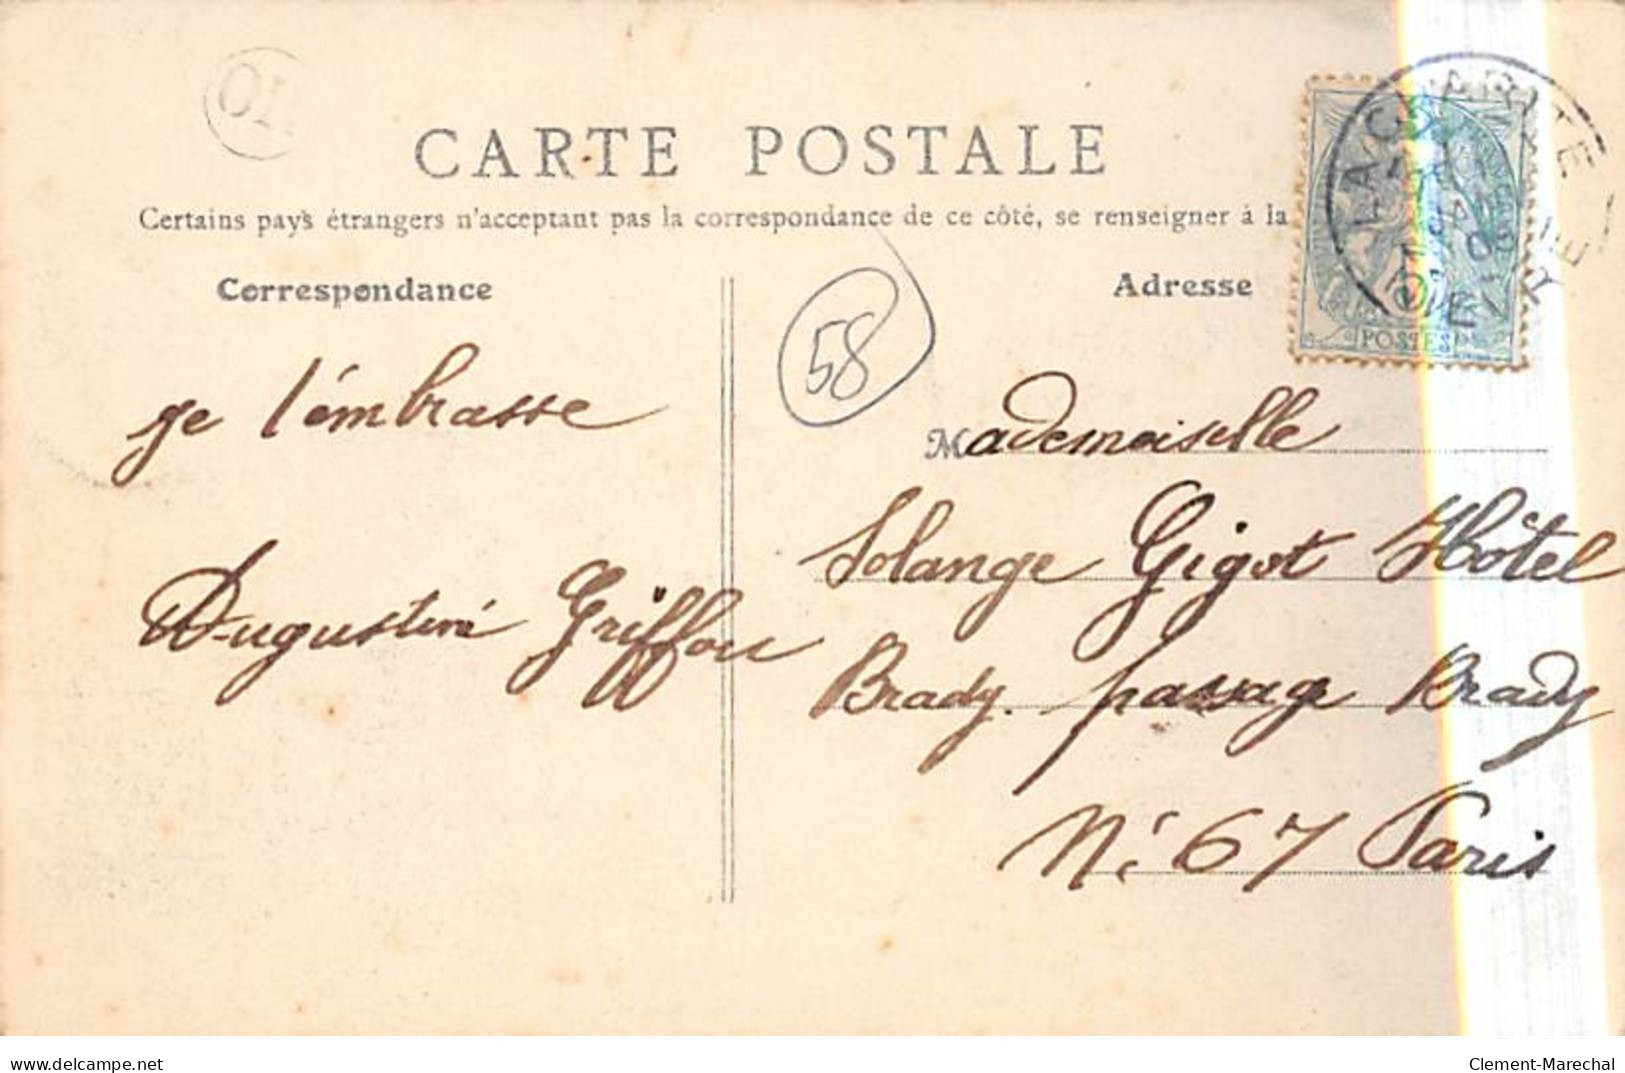 OL
CARTE POSTALE
Certains pays étrangers n'acceptant pas la correspondance de ce côté, se renseigner à la
Correspondance
Adresse
58
LA CHARITE
POSTES
je t'émbrasse
Mademoiselle
Solange Gigot Hôtel
Augustine Griffon
Brady. passage Brady
N: 67 Paris
www.delcampe.net
Clement-Marechal